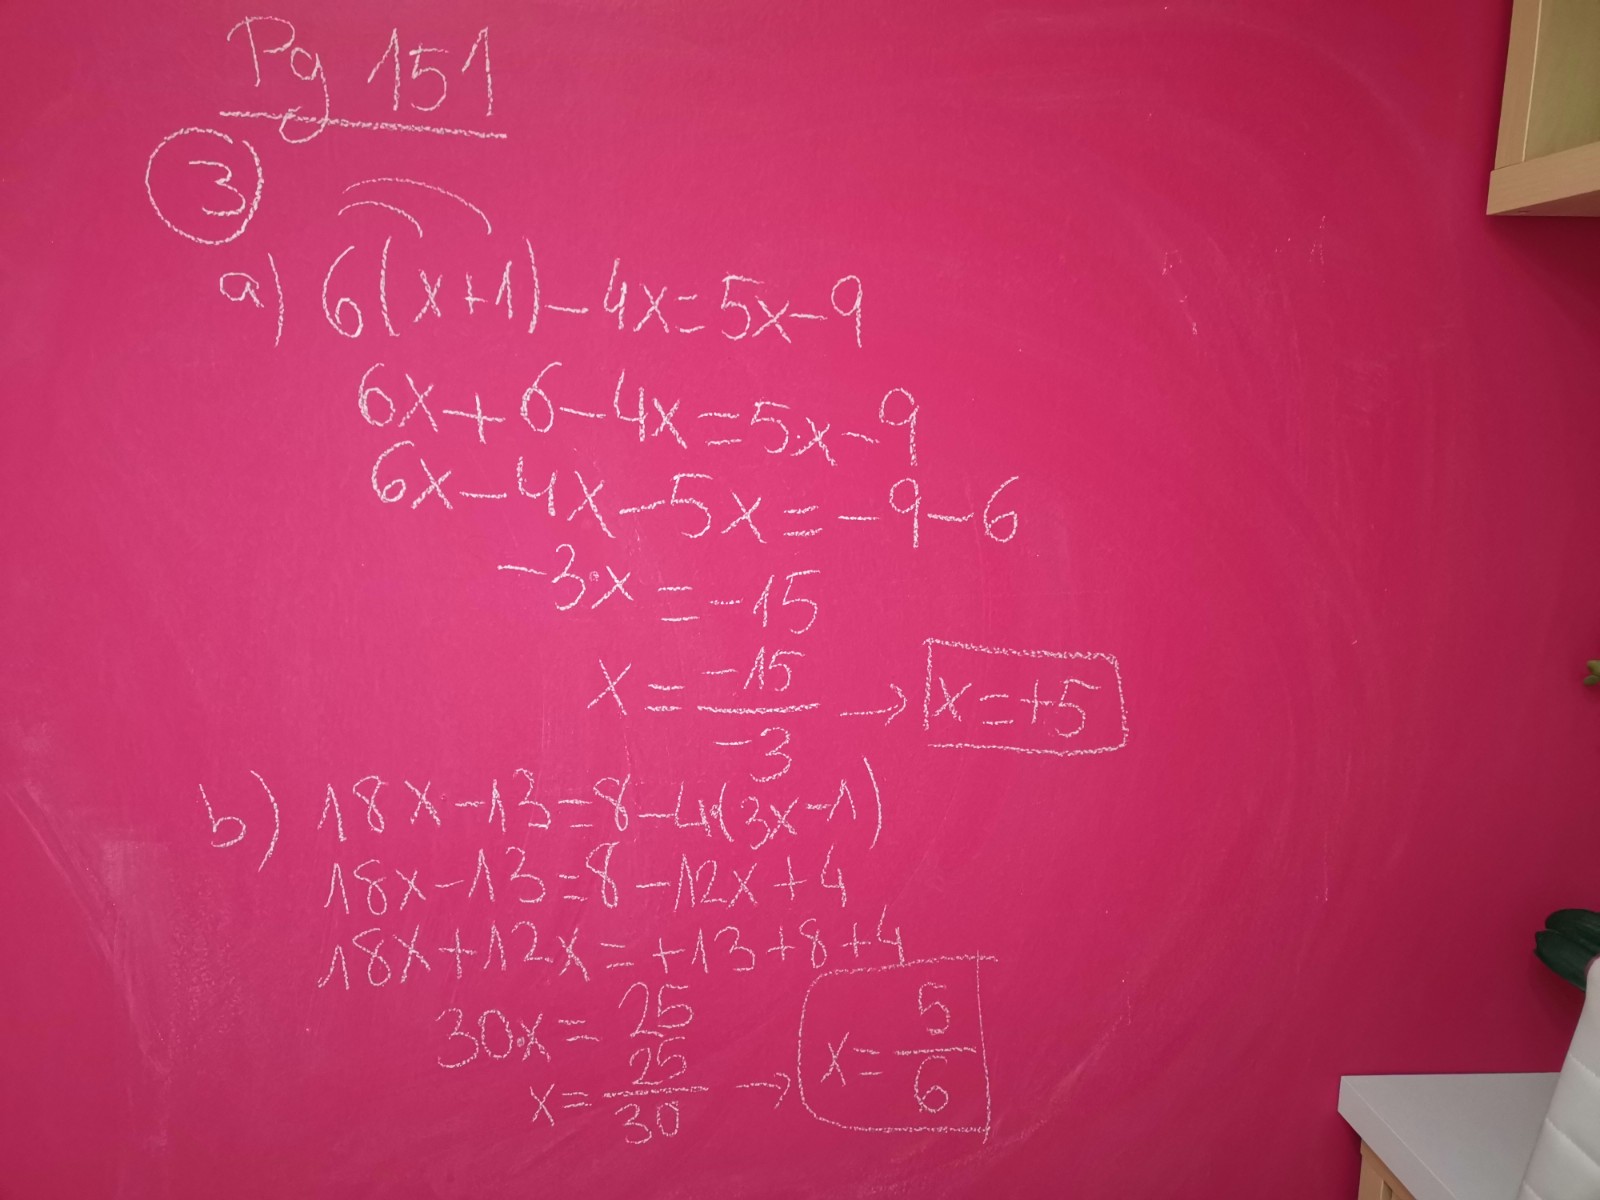 Pg 151
3
a) 6(x+1)-4x=5x-9
6x+6-4x=5·x-9
6x-4x-5x=-9-6
-3·x=-15
x=-15/-3 → x=+5
b) 18x-13=8-4·(3x-1)
18x-13=8-12x+4
18x+12·x=+13+8+4
30·x=25
x=25/30 → x=5/6